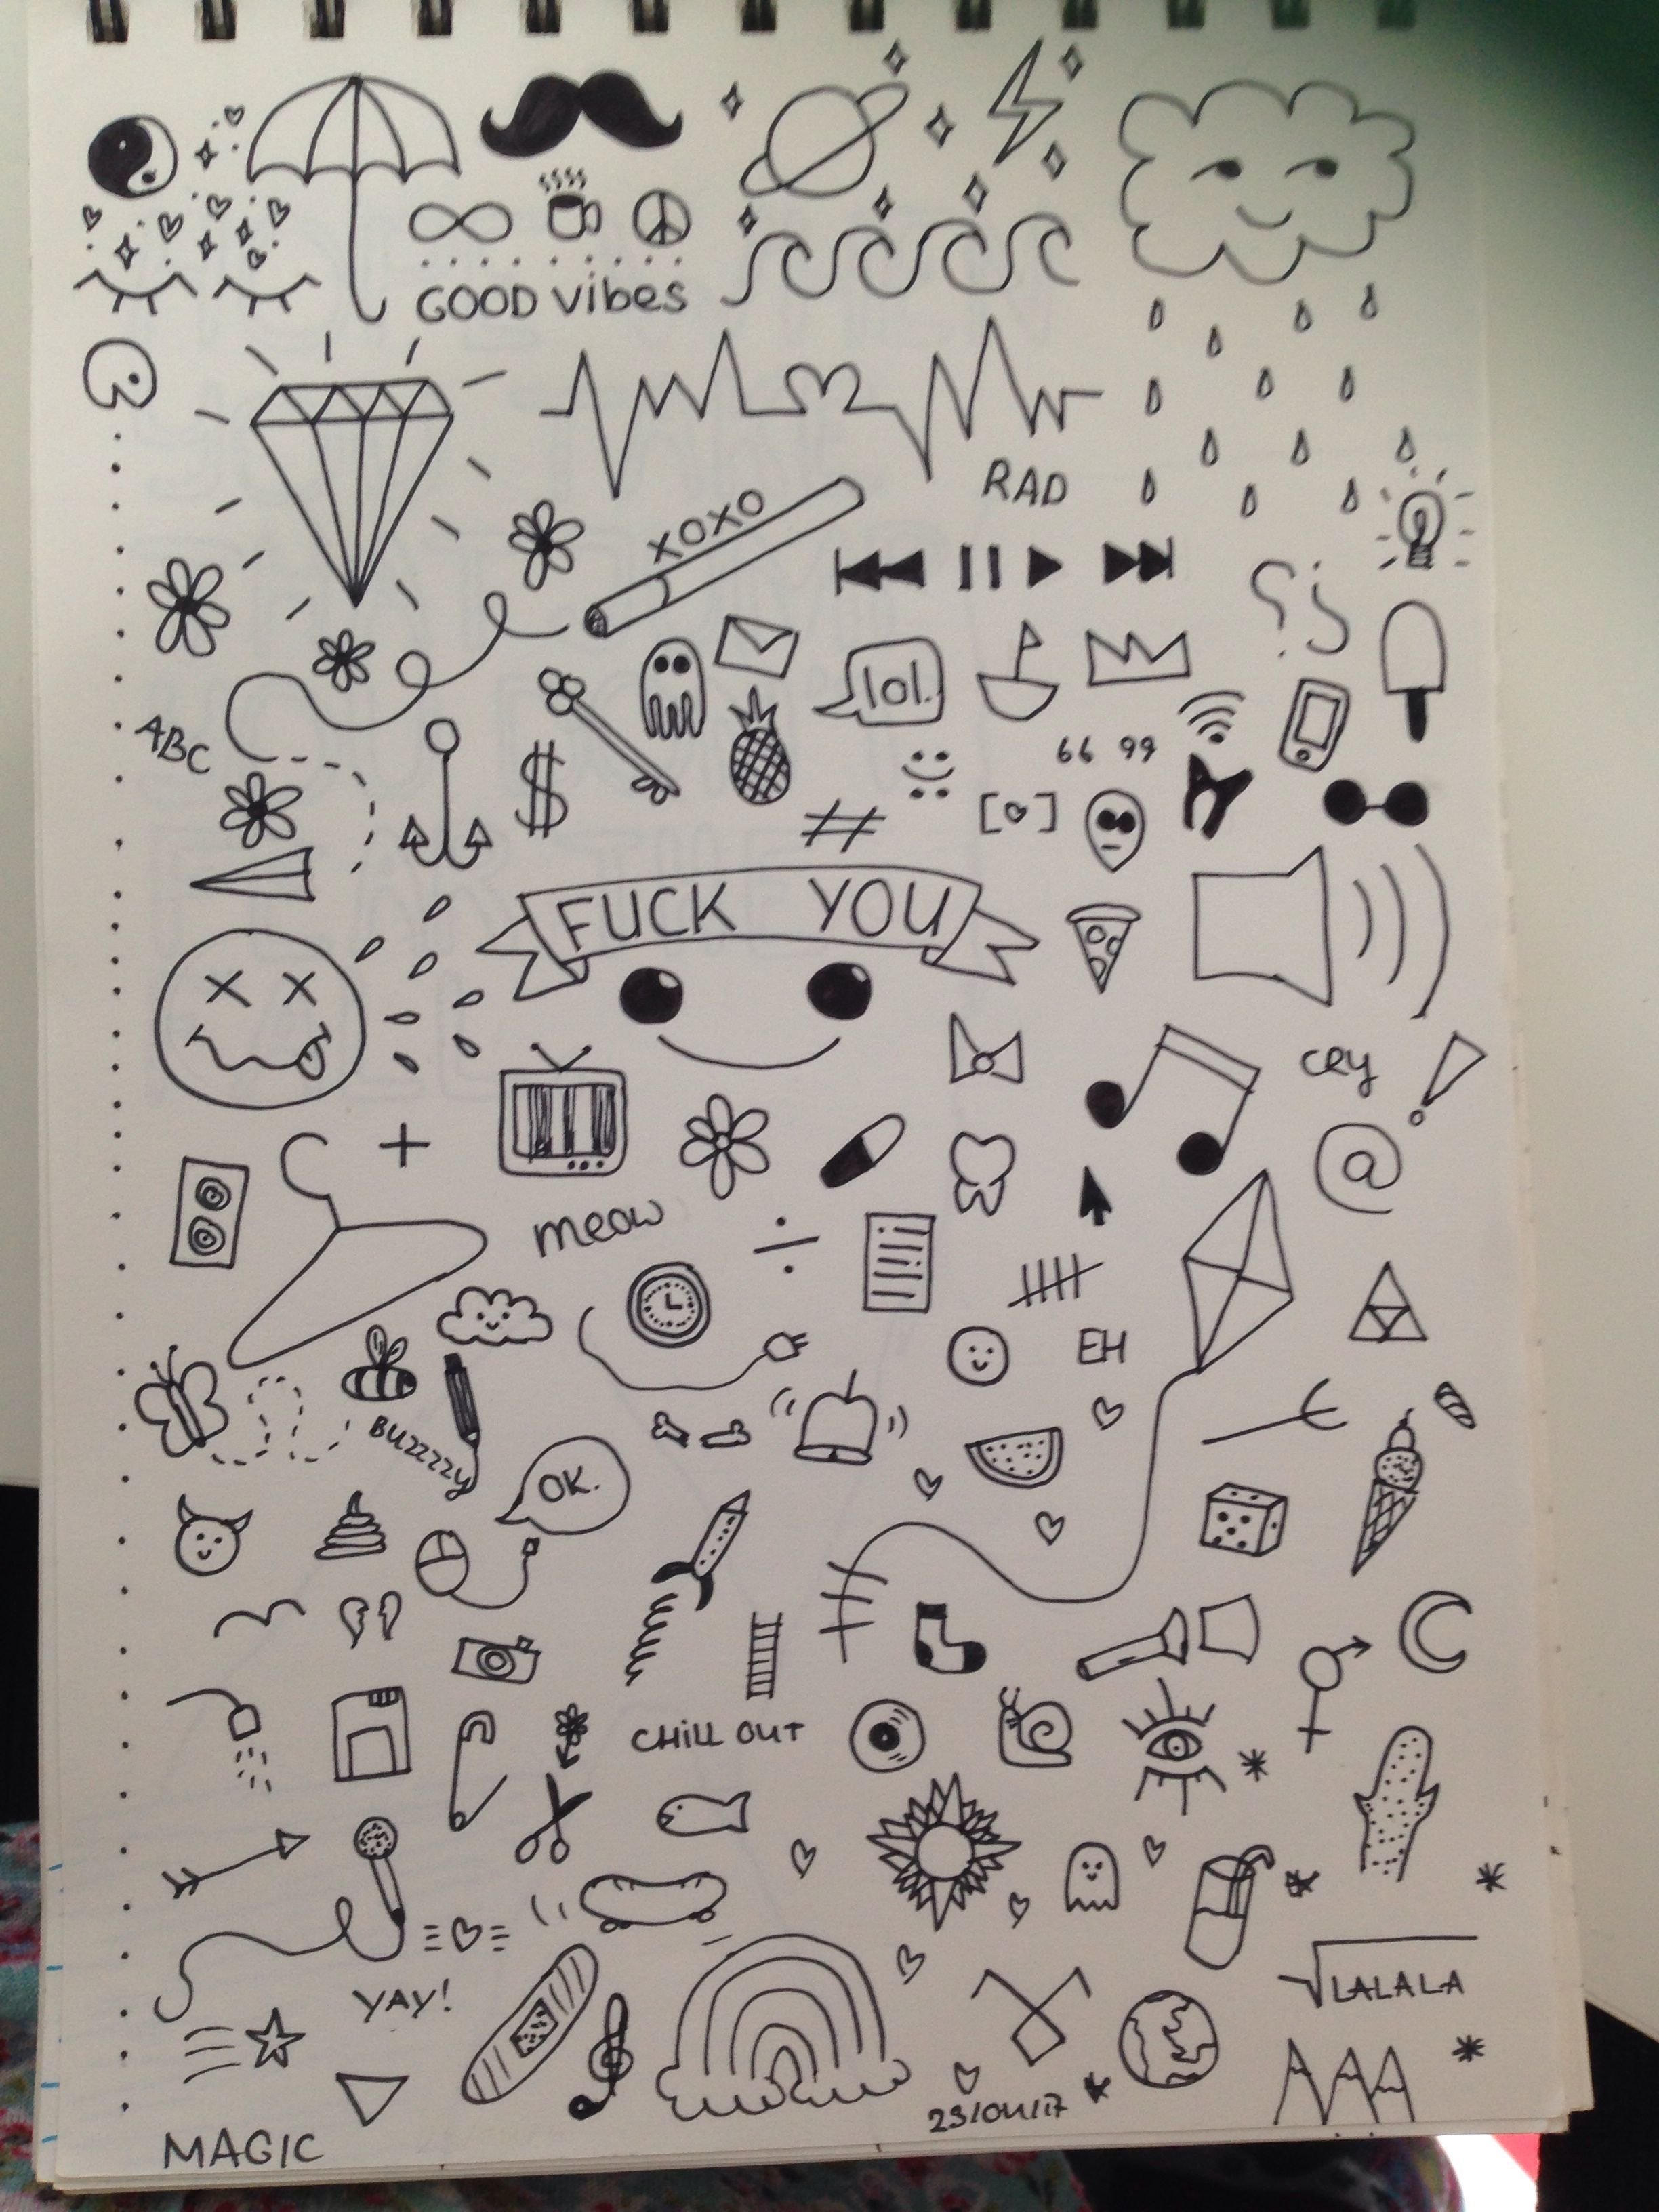 GOOD vibes
RAD
XOXO
lol.
ABC
$
66 99
#
[♡]
FUCK YOU
CRY
!
+
@
meow
÷
EH
BUZZZZY
OK.
CHILL OUT
YAY!
√LALALA
23/04/17
MAGIC